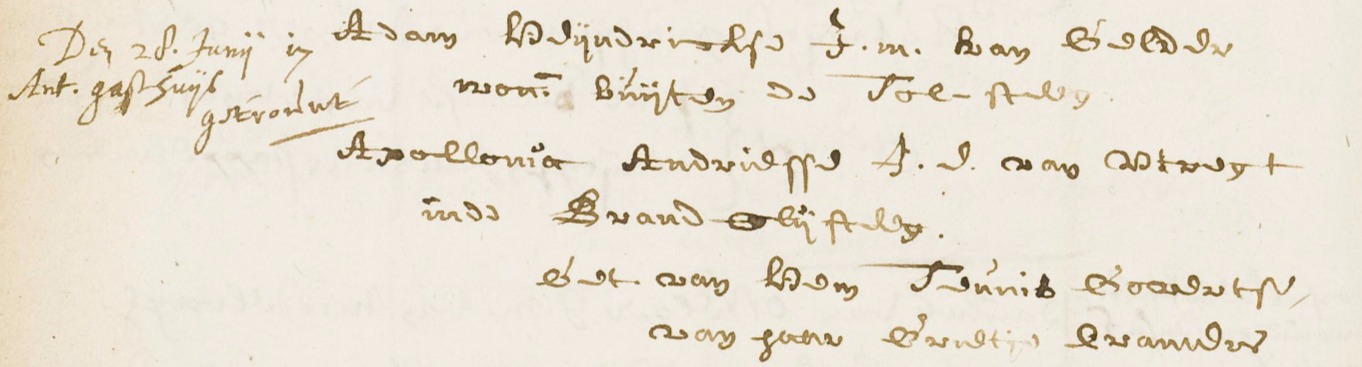 Den 28. Junij in
Ant. gasthuijs
getrouwt
Adam Heijndricksse J.m. van Gelder
won: buijten de Tolsteeg
Apollonia Andriesse J.d. van Utregt
inde Brandolijsteeg.
Get van Hem Teunis Goverts
van haar Grietje